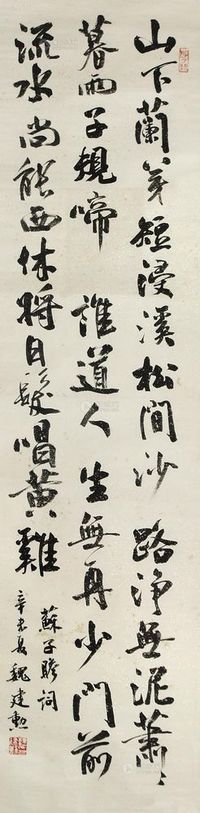 山下蘭芽短浸溪松間沙路淨無泥蕭〻
暮雨子規啼誰道人生無再少門前
流水尚能西休將白髮唱黃雞
蘇子瞻詞
辛未夏魏建勳